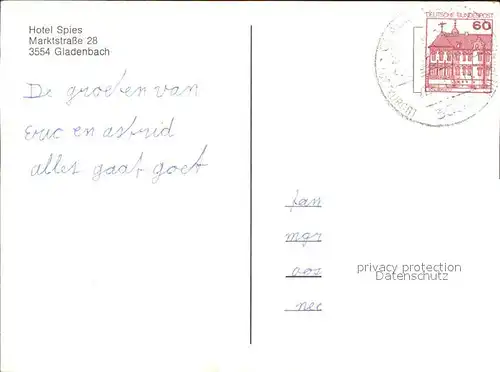 Hotel Spies
Marktstraße 28
3554 Gladenbach
De groeten van
eric en astrid
alles gaat goet
DEUTSCHE BUNDESPOST
60
fan
mgr
aoz
nec
privacy protection
Datenschutz